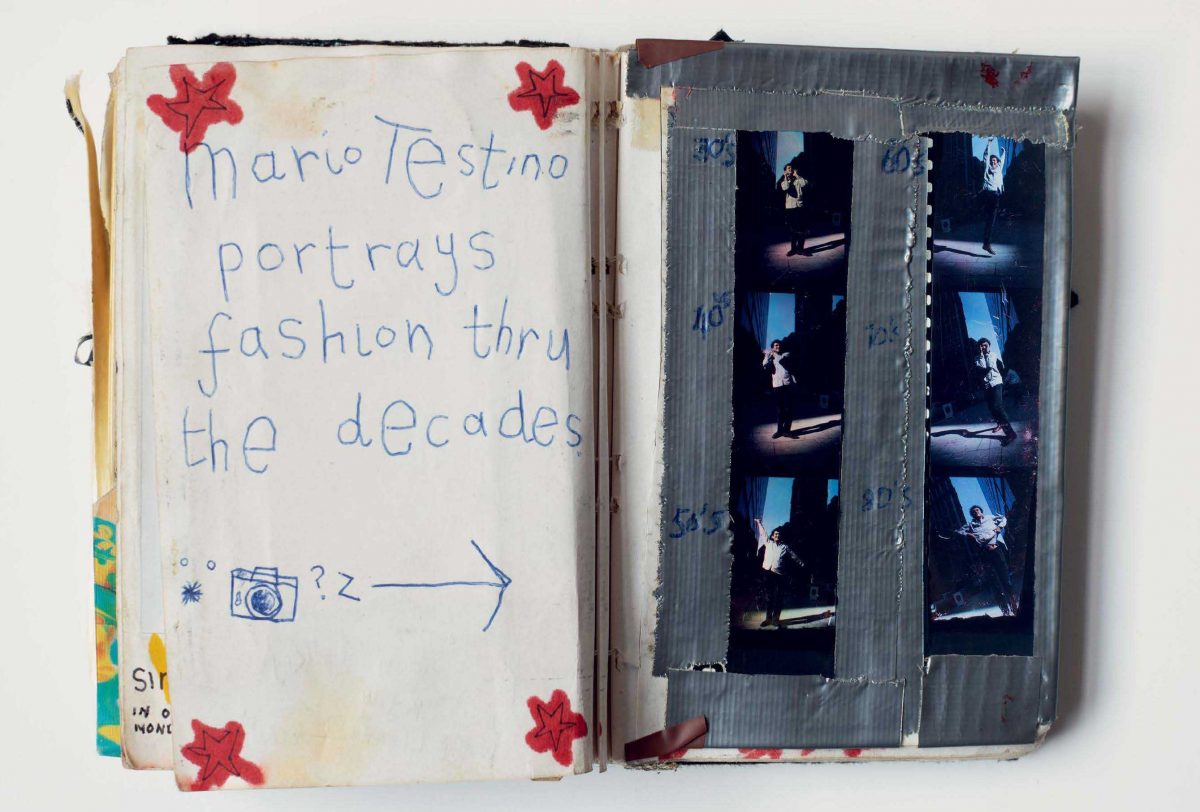 Mario Testino
portrays
fashion thru
the decades
?z
SIr
IN O
WOND
30's
40's
50's
60's
70's
80's